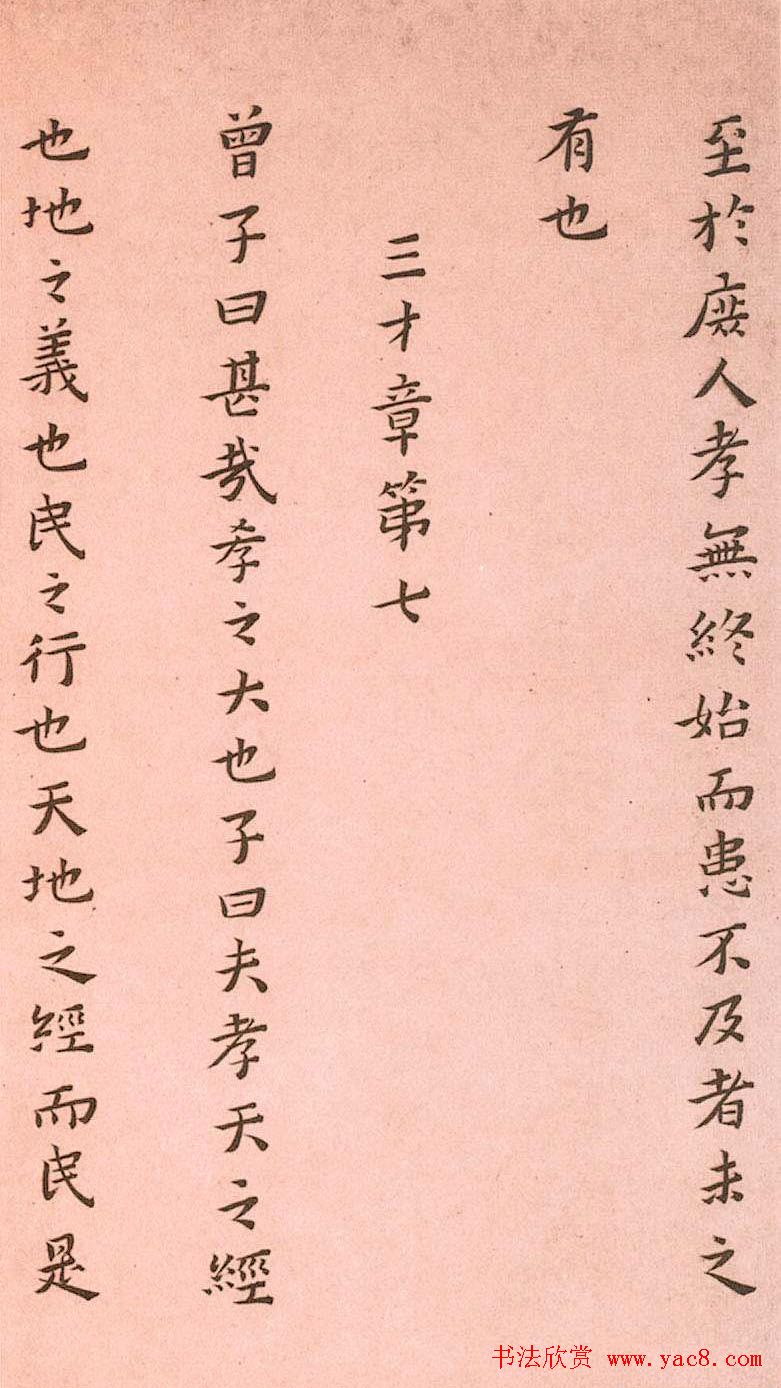 至於庶人孝無終始而患不及者未之
有也
三才章第七
曾子曰甚哉孝之大也子曰夫孝天之經
也地之義也民之行也天地之經而民是
书法欣赏 www.yac8.com